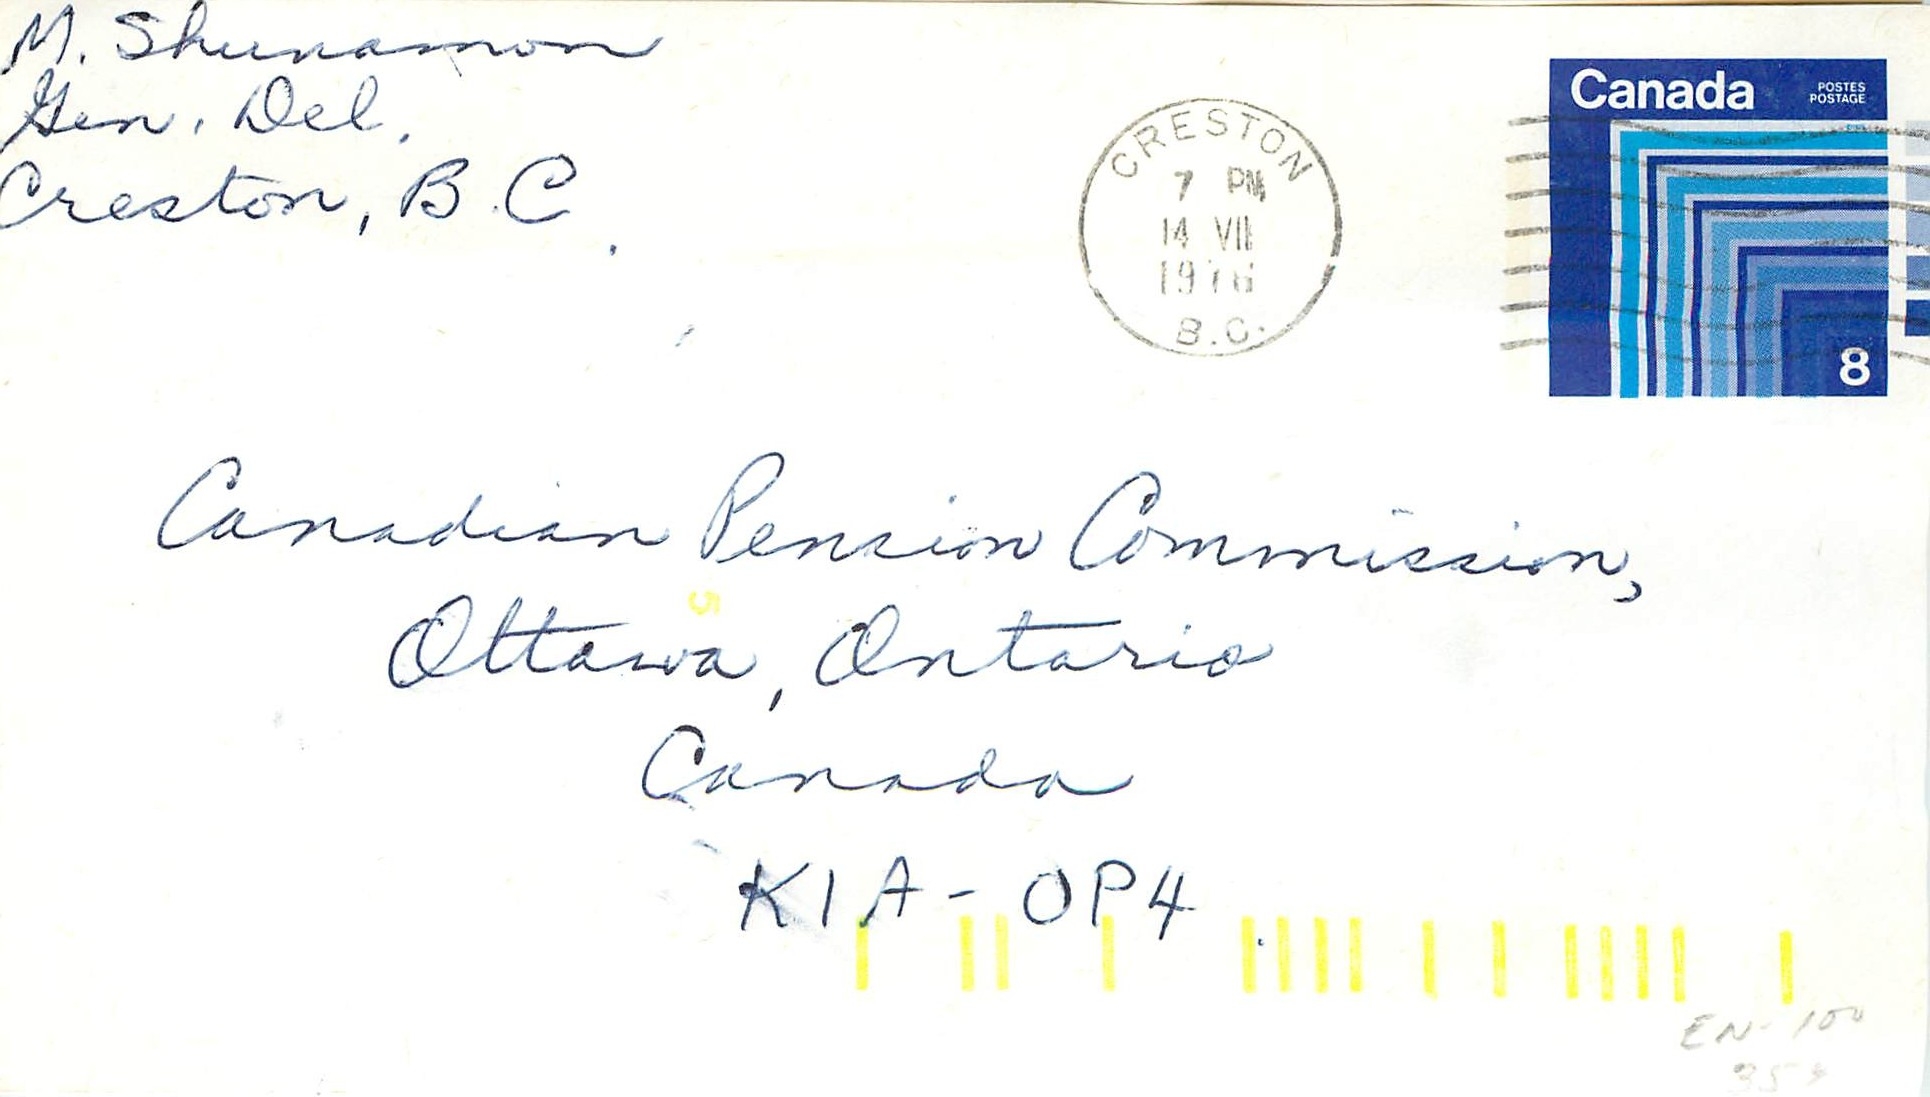 M. Shunamon
Gen. Del.
Creston, B.C.
CRESTON
7 PM
14 VII
1976
B.C.
Canada
POSTES
POSTAGE
8
Canadian Pension Commission,
5
Ottawa, Ontario
Canada
K1A-0P4
EN-100
35